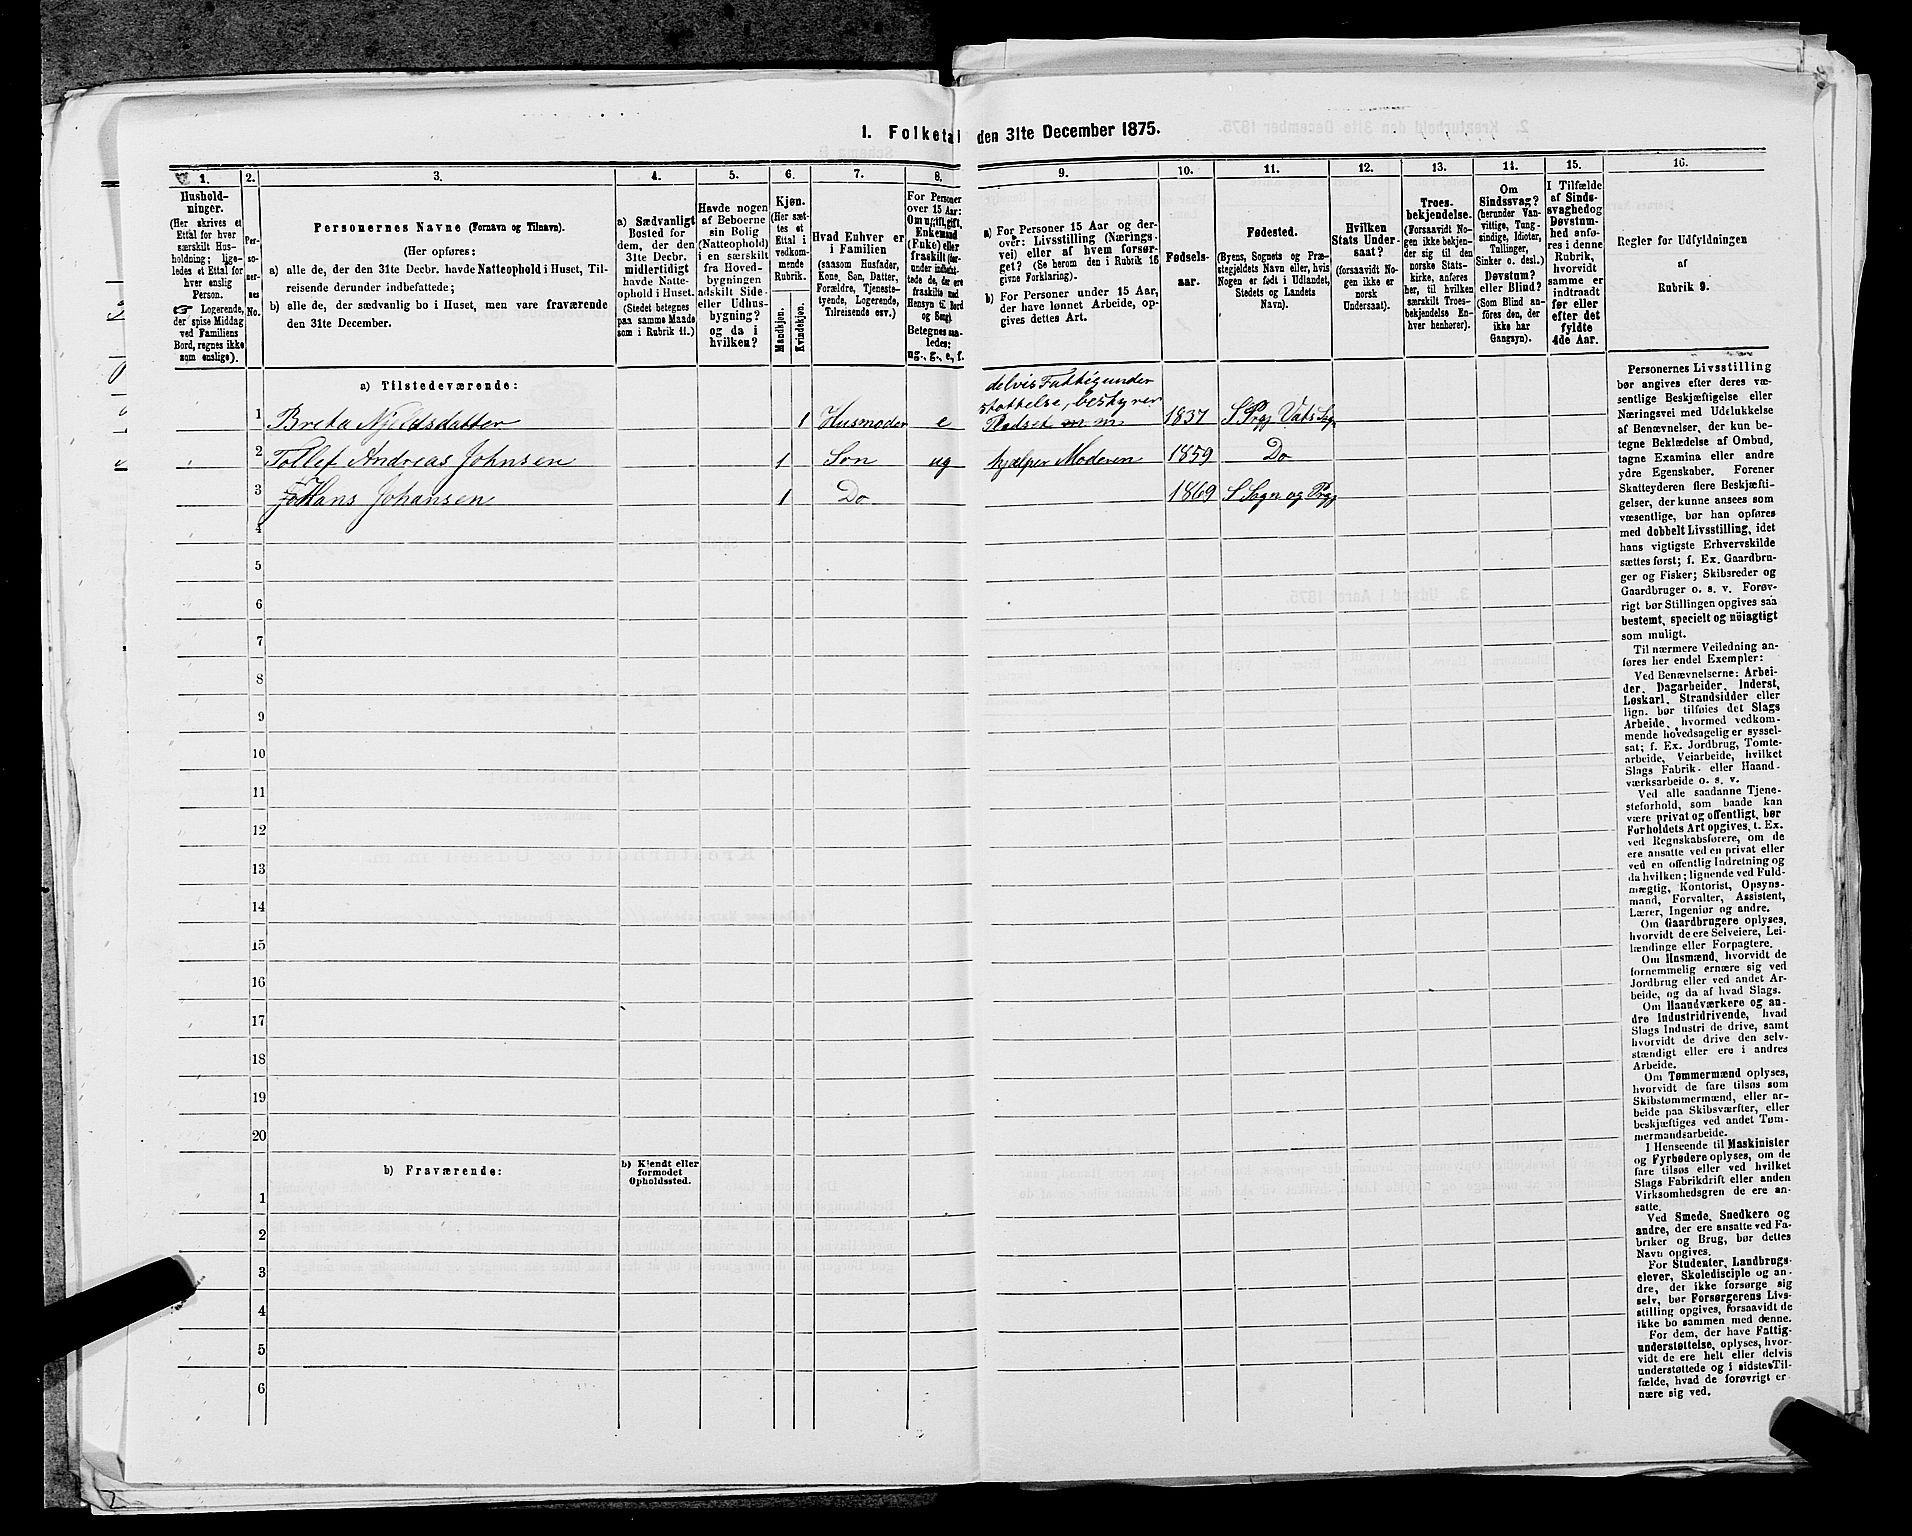 1. Folketal den 31te December 1875.
1.
Hushold-
ninger.
(Her skrives et
Ettal for hver
særskilt Hus-
holdning; lige-
ledes et Ettal for
hver enslig
Person.
☞ Logerende,
der spise Middag
ved Familiens
Bord, regnes ikke
som enslige).
2.
Per-
so-
ner-
nes
No.
3.
Personernes Navne (Fornavn og Tilnavn).
(Her opføres:
a) alle de, der den 31te Decbr. havde Natteophold i Huset, Til-
reisende derunder indbefattede;
b) alle de, der sædvanlig bo i Huset, men vare fraværende
den 31te December.
4.
a) Sædvanligt
Bosted for
dem, der den
31te Decbr.
midlertidigt
havde Natte-
ophold i Huset.
(Stedet betegnes
paa samme Maade
som i Rubrik 11.)
5.
Havde nogen
af Beboerne
sin Bolig
(Natteophold)
i en særskilt
fra Hoved-
bygningen
adskilt Side-
eller Udhus-
bygning?
og da i
hvilken?
6.
Kjøn.
(Her sæt-
tes et
Ettal i
vedkom-
mende
Rubrik.
Mandkjøn.
Kvindekjøn.
7.
Hvad Enhver er
i Familien
(saasom Husfader,
Kone, Søn, Datter,
Forældre, Tjeneste-
tyende, Logerende,
Tilreisende osv.)
8.
For Personer
over 15 Aar:
Om ugift, gift,
Enkemand
(Enke) eller
fraskilt (her-
under indbefat-
tede de, der ere
fraskilte med
Hensyn til Bord
og Seng).
Betegnes saa-
ledes:
ug., g., e., f.
9.
a) For Personer 15 Aar og der-
over: Livsstilling (Nærings-
vei) eller af hvem forsør-
get? (Se herom den i Rubrik 16
givne Forklaring).
b) For Personer under 15 Aar,
der have lønnet Arbeide, op-
gives dettes Art.
10.
Fødsels-
aar.
11.
Fødested.
(Byens, Sognets og Præ-
stegjeldets Navn eller, hvis
Nogen er født i Udlandet,
Stedets og Landets
Navn).
12.
Hvilken
Stats Under-
saat?
(forsaavidt No-
gen ikke er
norsk
Undersaat).
13.
Troes-
bekjendelse.
(Forsaavidt No-
gen ikke bekjen-
der sig til den
norske Stats-
kirke, anføres
her, til hvilken
særskilt Troes-
bekjendelse En-
hver henhører).
14.
Om
Sindssvag?
(herunder Van-
vittige, Tung-
sindige, Idioter,
Tullinger,
Sinker o. desl.)
Døvstum?
eller Blind?
(Som Blind an-
føres den, der
ikke har
Gangsyn).
15.
I Tilfælde
af Sinds-
svaghed og
Døvstum-
hed anfø-
res i denne
Rubrik,
hvorvidt
samme er
indtraadt
før eller
efter det
fyldte
4de Aar.
16.
Regler for Udfyldningen
af
Rubrik 9.
a) Tilstedeværende:
1 Breta Njeldsdatter 1 Husmoder e delvis Fattigunder
støttelse, bestyrer
Pladset m m 1837 S Prgj Vats Sgn
2 Tollef Andreas Johnsen 1 Søn ug hjælper Moderen 1859 Do
3 Hans Johansen 1 Do 1869 S Sogn og Prgj
4
5
6
7
8
9
10
11
12
13
14
15
16
17
18
19
20
b) Fraværende:
b) Kjendt eller
formodet
Opholdssted.
1
2
3
4
5
6
Personernes Livsstilling
bør angives efter deres væ-
sentlige Beskjæftigelse eller
Næringsvei med Udelukkelse
af Benævnelser, der kun be-
tegne Beklædelse af Ombud,
tagne Examina eller andre
ydre Egenskaber. Forener
Skatteyderen flere Beskjæfti-
gelser, der kunne ansees som
væsentlige, bør han opføres
med dobbelt Livsstilling, idet
hans vigtigste Erhvervskilde
sættes først; f. Ex. Gaardbru-
ger og Fisker; Skibsreder og
Gaardbruger o. s. v. Forøv-
rigt bør Stillingen opgives saa
bestemt, specielt og nöiagtigt
som muligt.
Til nærmere Veiledning an-
føres her endel Exempler:
Ved Benævnelserne: Arbei-
der, Dagarbeider, Inderst,
Løskarl, Strandsidder eller
lign. bør tilføies det Slags
Arbeide, hvormed vedkom-
mende hovedsagelig er syssel-
sat; f. Ex. Jordbrug, Tomte-
arbeide, Veiarbeide, hvilket
Slags Fabrik- eller Haand-
værksarbeide o. s. v.
Ved alle saadanne Tjene-
steforhold, som baade kan
være privat og offentligt, bør
Forholdets Art opgives, t. Ex.
ved Regnskabsførere, om de
ere ansatte ved en privat eller
ved en offentlig Indretning og
da hvilken; lignende ved Fuld-
mægtig, Kontorist, Opsyns-
mand, Forvalter, Assistent,
Lærer, Ingeniør og andre.
Om Gaardbrugere oplyses,
hvorvidt de ere Selveiere, Lei-
lændinge eller Forpagtere.
Om Husmænd, hvorvidt de
fornemmelig ernære sig ved
Jordbrug eller ved andet Ar-
beide, og da af hvad Slags.
Om Haandværkere og an-
dre Industridrivende, hvad
Slags Industri de drive, samt
hvorvidt de drive den selv-
stændigt eller ere i andres
Arbeide.
Om Tømmermænd oplyses,
hvorvidt de fare tilsøs som
Skibstømmermænd, eller ar-
beide paa Skibsværfter, eller
beskjæftiges ved andet Tøm-
mermandsarbeide.
I Henseende til Maskinister
og Fyrbødere oplyses, om de
fare tilsøs eller ved hvilket
Slags Fabrikdrift eller anden
Virksomhedsgren de ere an-
satte.
Ved Smede, Snedkere og
andre, der ere ansatte ved Fa-
briker og Brug, bør dettes
Navn opgives.
For Studenter, Landbrugs-
elever, Skoledisciple og an-
dre, der ikke forsørge sig
selv, bør Forsørgerens Livs-
stilling opgives, forsaavidt de
ikke bo sammen med denne.
For dem, der have Fattig-
understøttelse, oplyses, hvor-
vidt de ere helt eller delvis
understøttede og i sidste Til-
fælde, hvad de forøvrigt er-
nære sig ved.